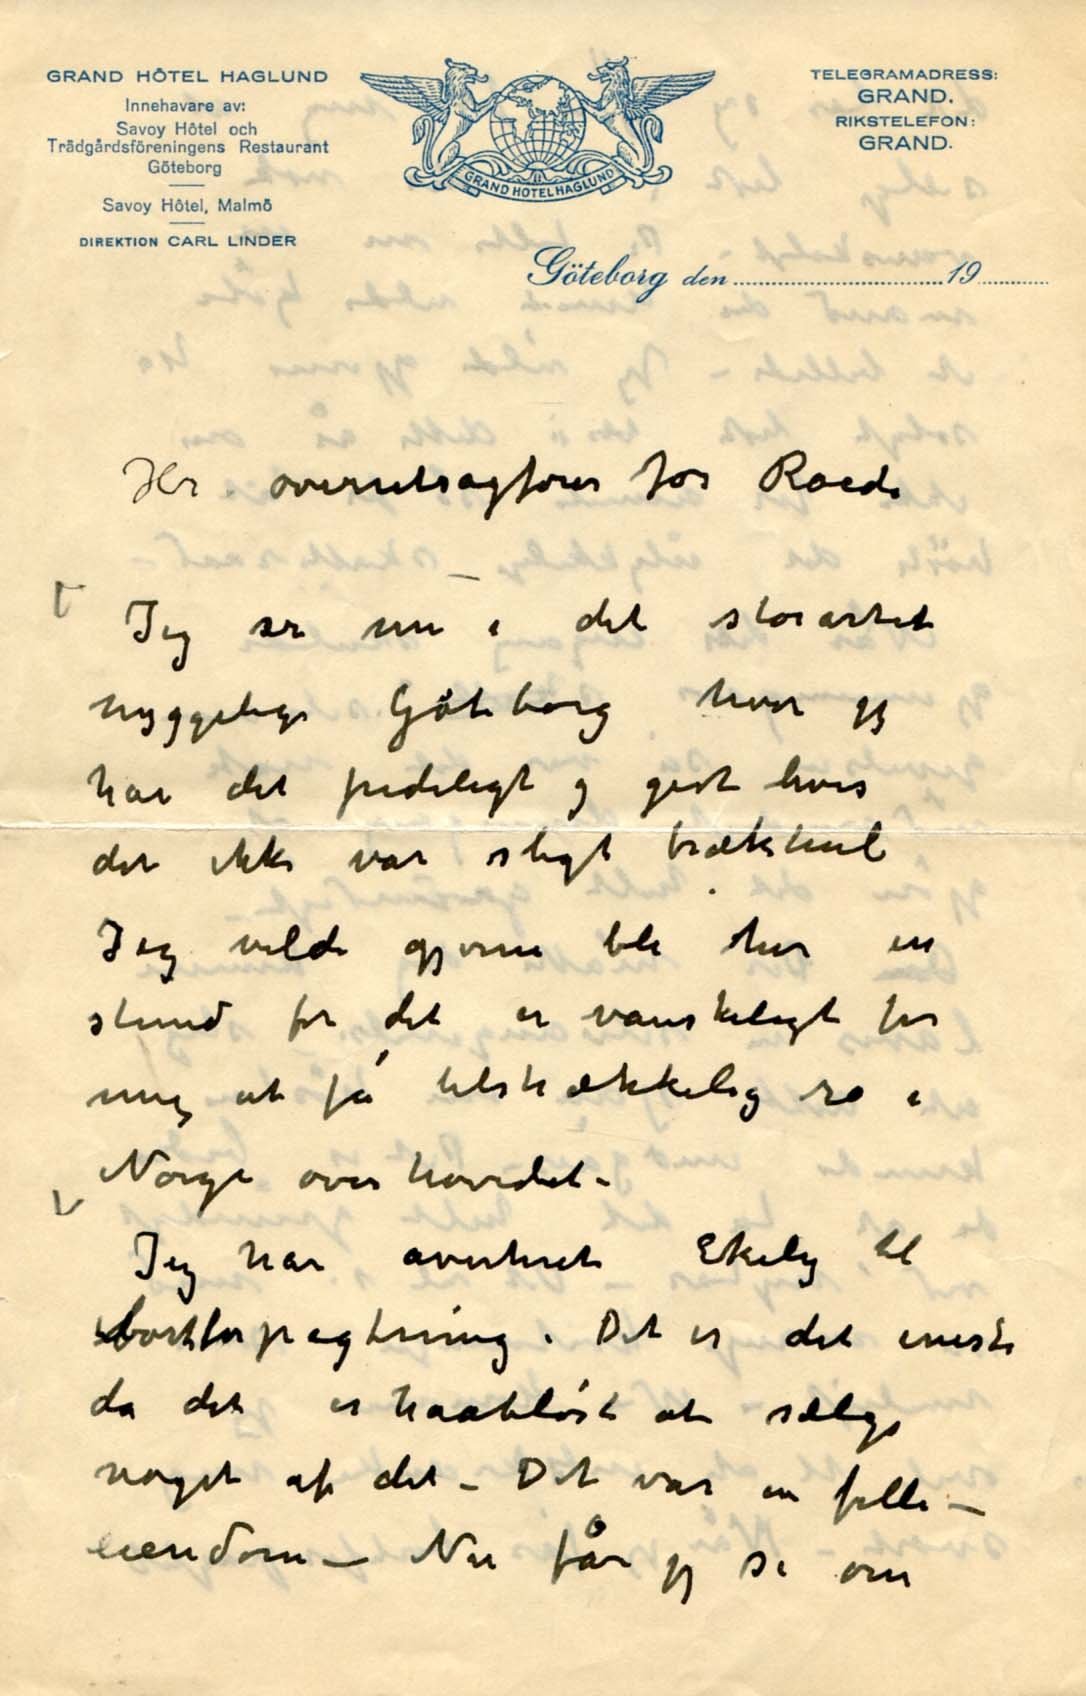 GRAND HÔTEL HAGLUND
Innehavare av:
Savoy Hôtel och
Trädgårdsföreningens Restaurant
Göteborg
Savoy Hôtel, Malmö
DIREKTION CARL LINDER
GRAND HOTEL HAGLUND
TELEGRAMADRESS:
GRAND.
RIKSTELEFON:
GRAND.
Göteborg den 19
Hr. overretsagfører Roede
Jeg er nu i det storartet
hyggelige Göteborg hvor jeg
har det fredeligt og godt hvis
det ikke var sligt
Jeg vilde gjerne bli her en
stund for det er vanskeligt for
mig at få tilstrækkelig ro i
Norge overhovedet –
Jeg har averteret Ekely til
bortforpagtning. Det er det eneste
da det er haabløst at sælge
noget af det – Det var en felle –
eiendom – Nu får jeg se om